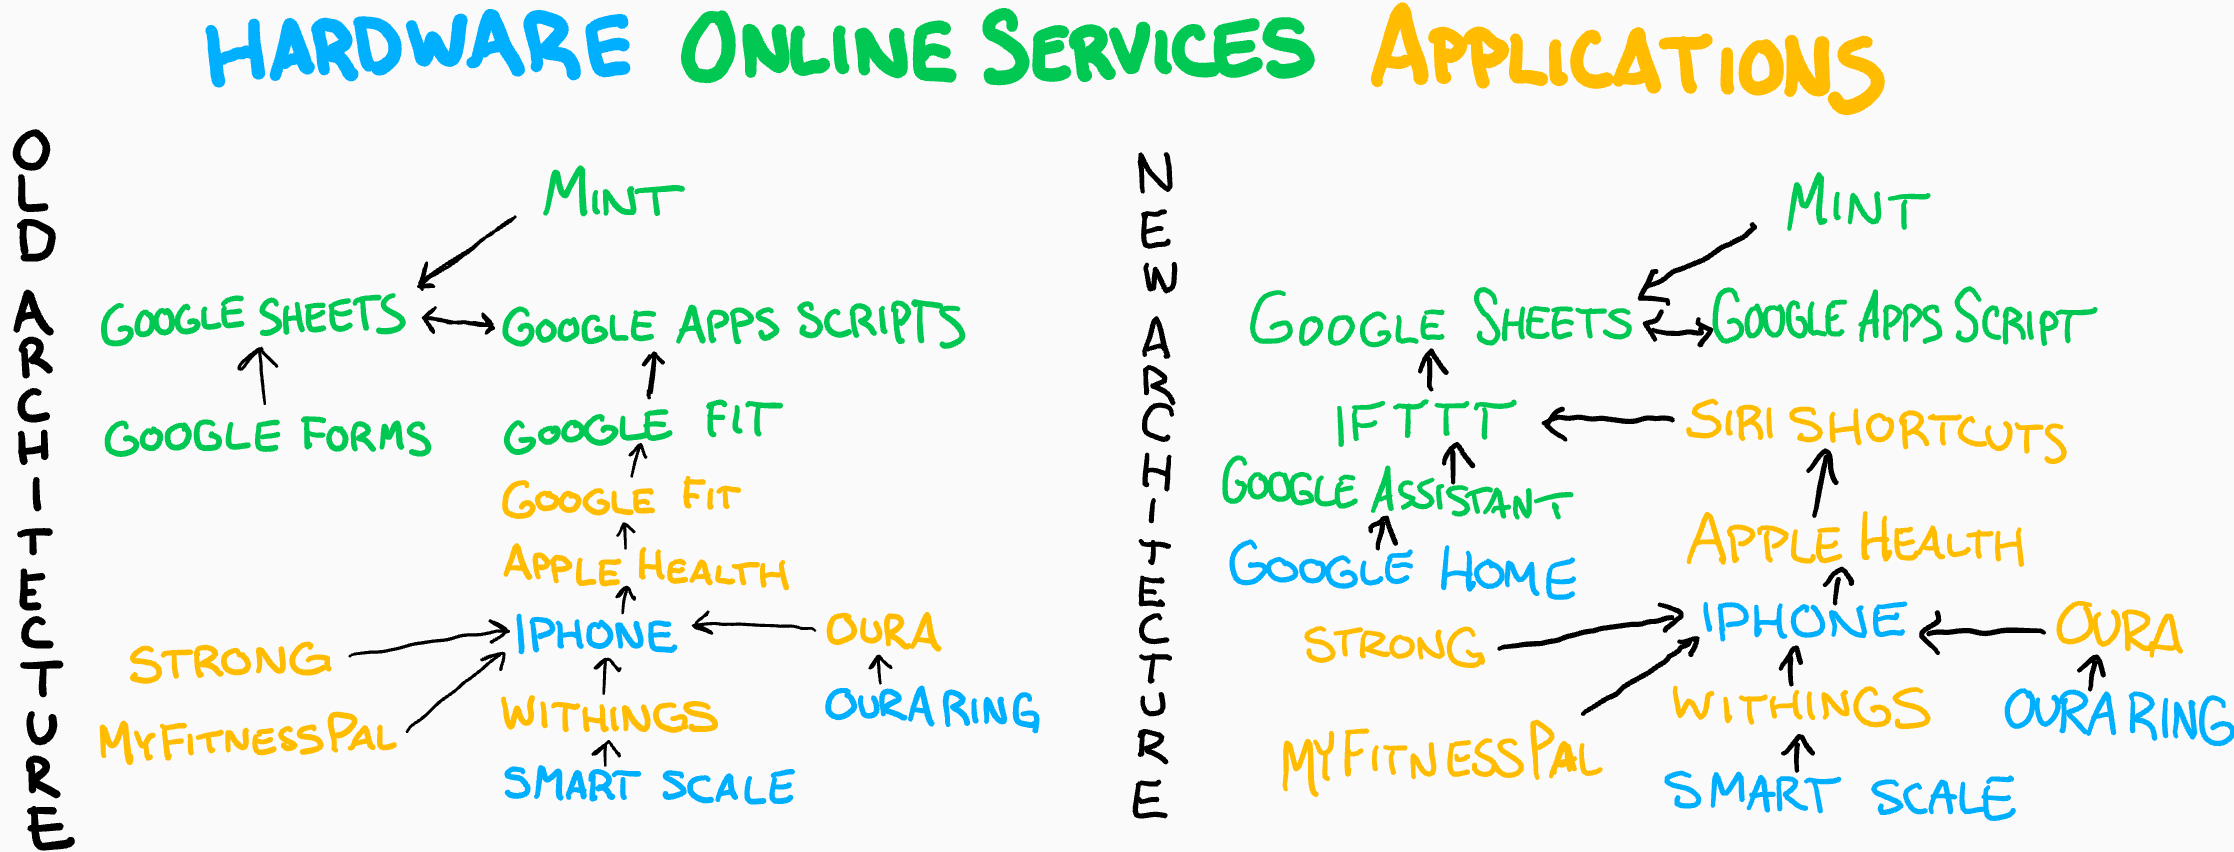 HARDWARE ONLINE SERVICES APPLICATIONS
OLD ARCHITECTURE
MINT
GOOGLE SHEETS
GOOGLE APPS SCRIPTS
GOOGLE FORMS
GOOGLE FIT
GOOGLE FIT
APPLE HEALTH
IPHONE
OURA
STRONG
MYFITNESSPAL
WITHINGS
OURA RING
SMART SCALE
NEW ARCHITECTURE
MINT
GOOGLE SHEETS
GOOGLE APPS SCRIPT
IFTTT
SIRI SHORTCUTS
GOOGLE ASSISTANT
GOOGLE HOME
APPLE HEALTH
IPHONE
OURA
STRONG
WITHINGS
OURA RING
MYFITNESSPAL
SMART SCALE